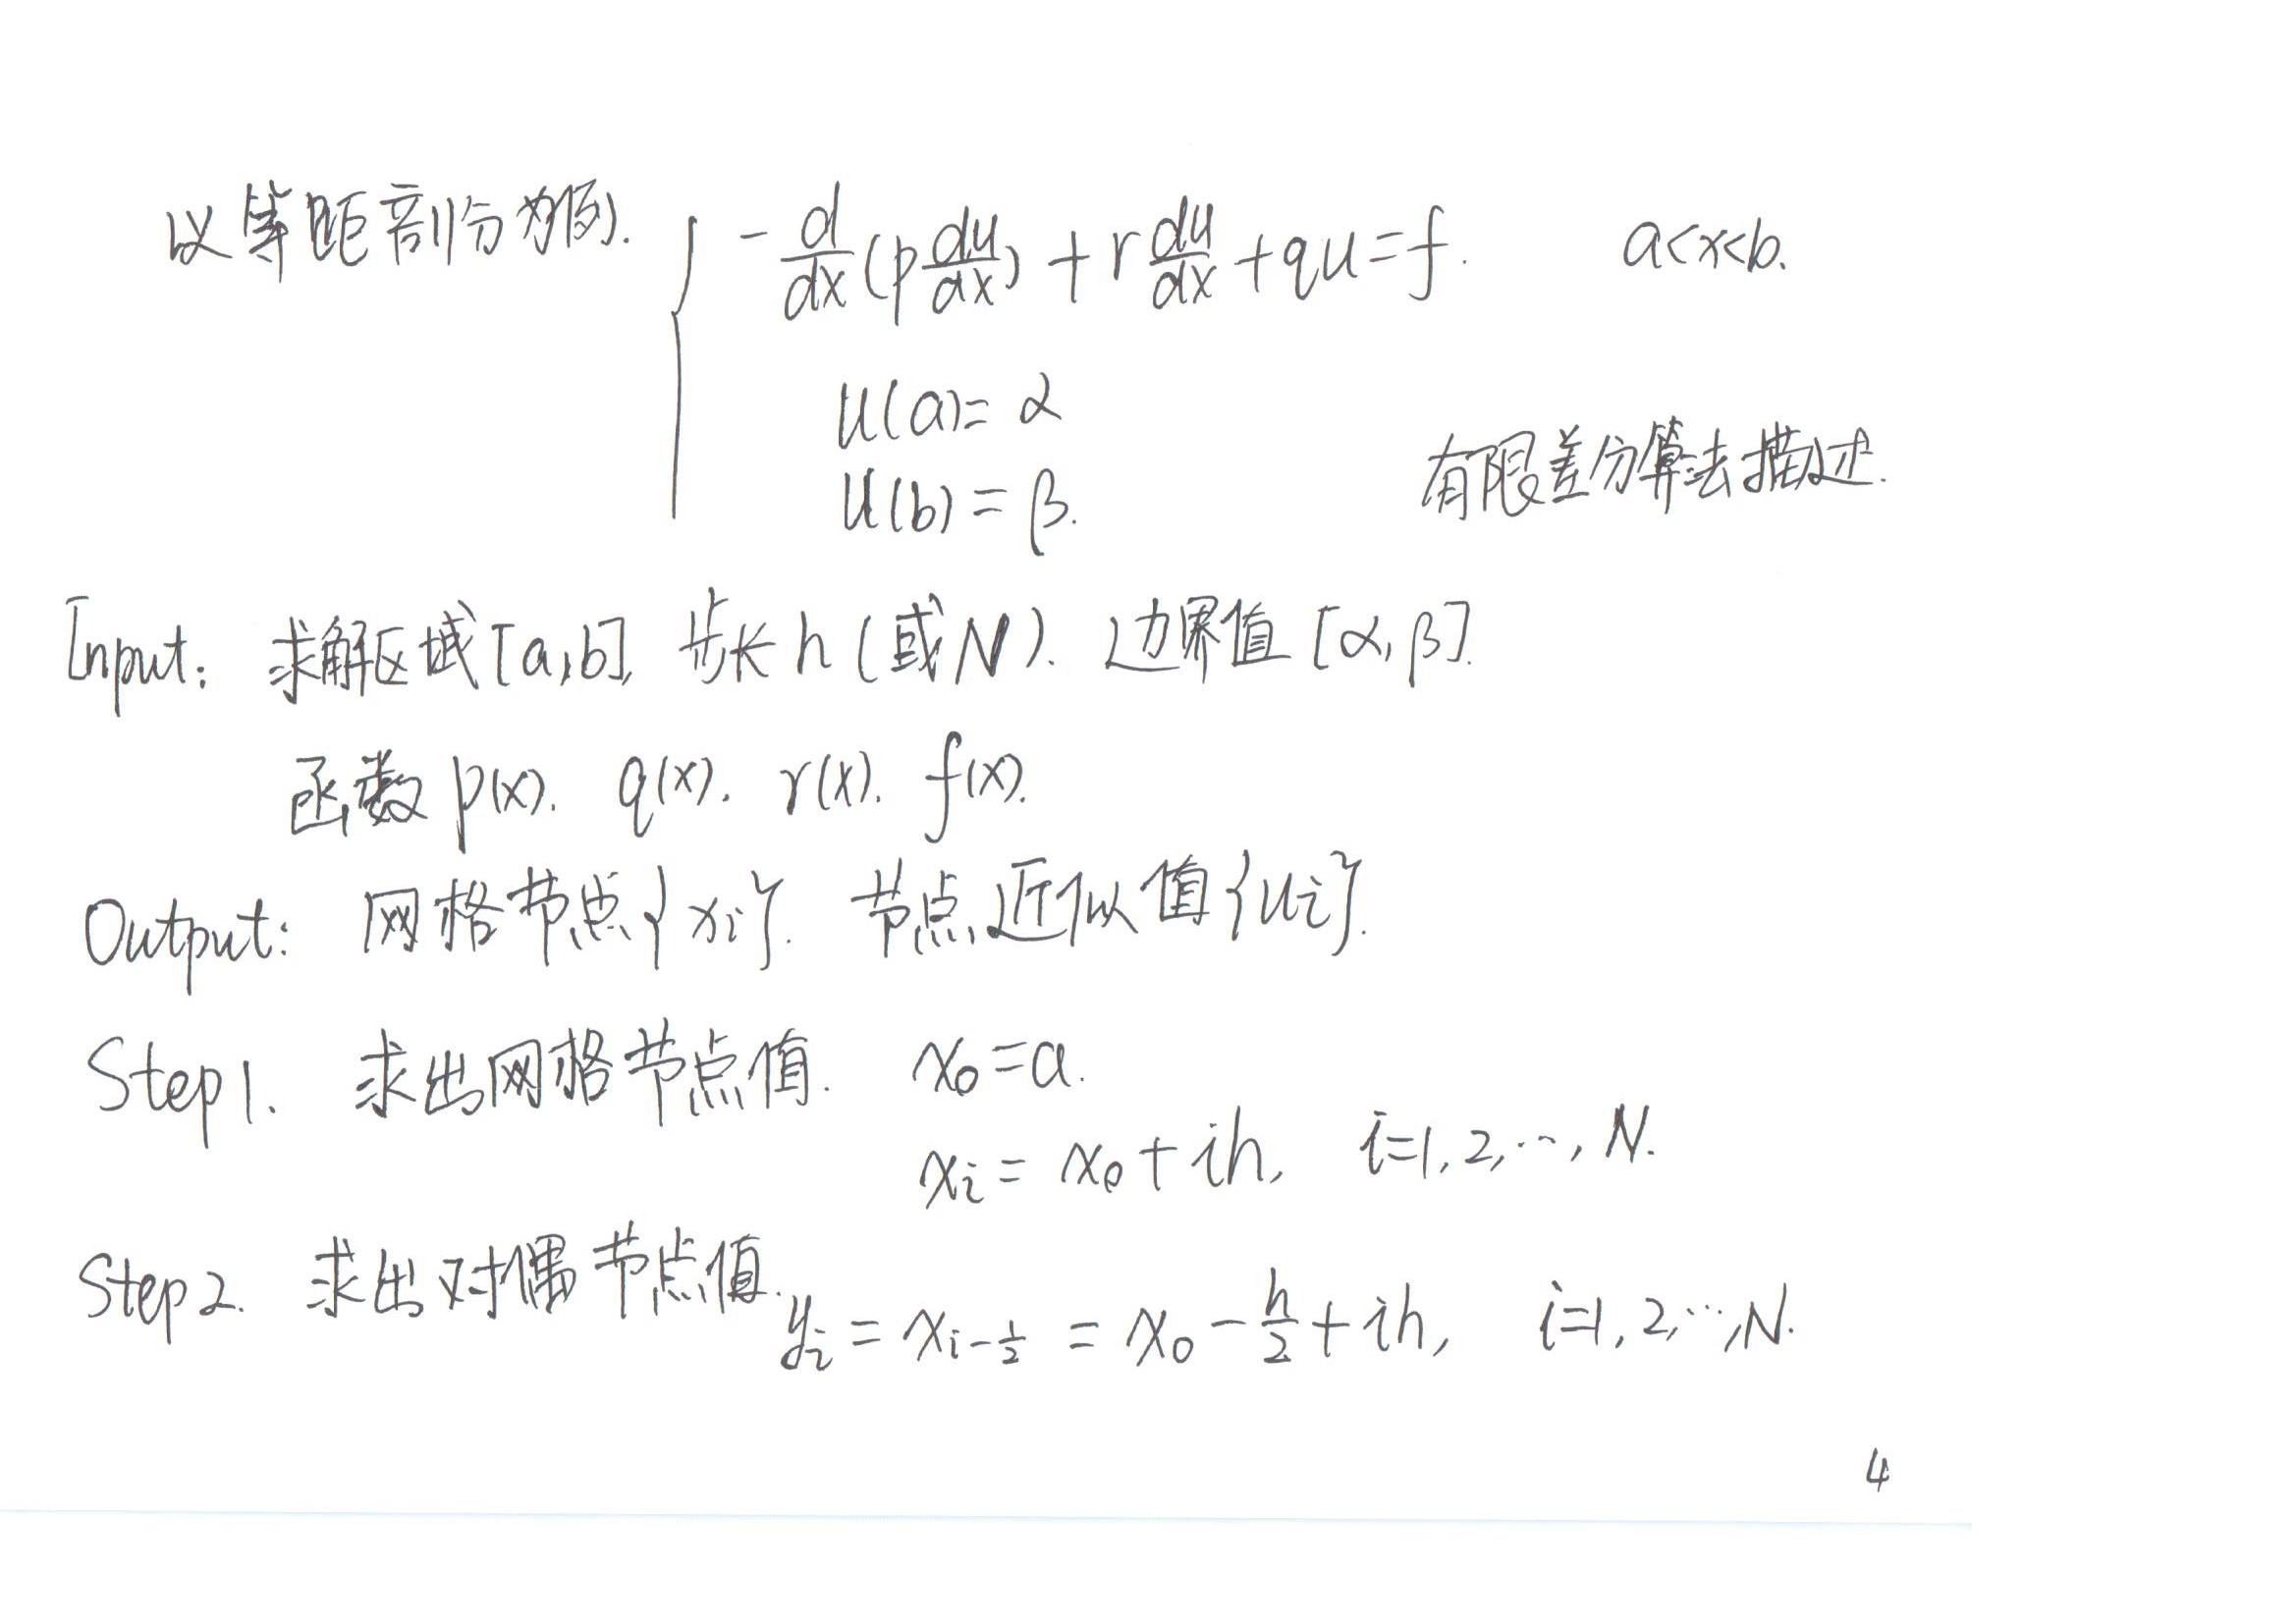 以等距剖分为例. { -d/dx(p du/dx) + r du/dx + qu = f. a<x<b.
u(a)= α
u(b) = β.
有限差分算法描述.
Input: 求解区域[a,b], 步长h(或N). 边界值[α,β].
函数p(x). q(x). r(x). f(x).
Output: 网格节点{xi}. 节点近似值{ui}.
Step1. 求出网格节点值. x₀=a.
xi = x₀+ih, i=1,2,…,N.
Step2. 求出对偶节点值.
yi = x_{i-1/2} = x₀ - h/2 + ih, i=1,2,…,N.
4